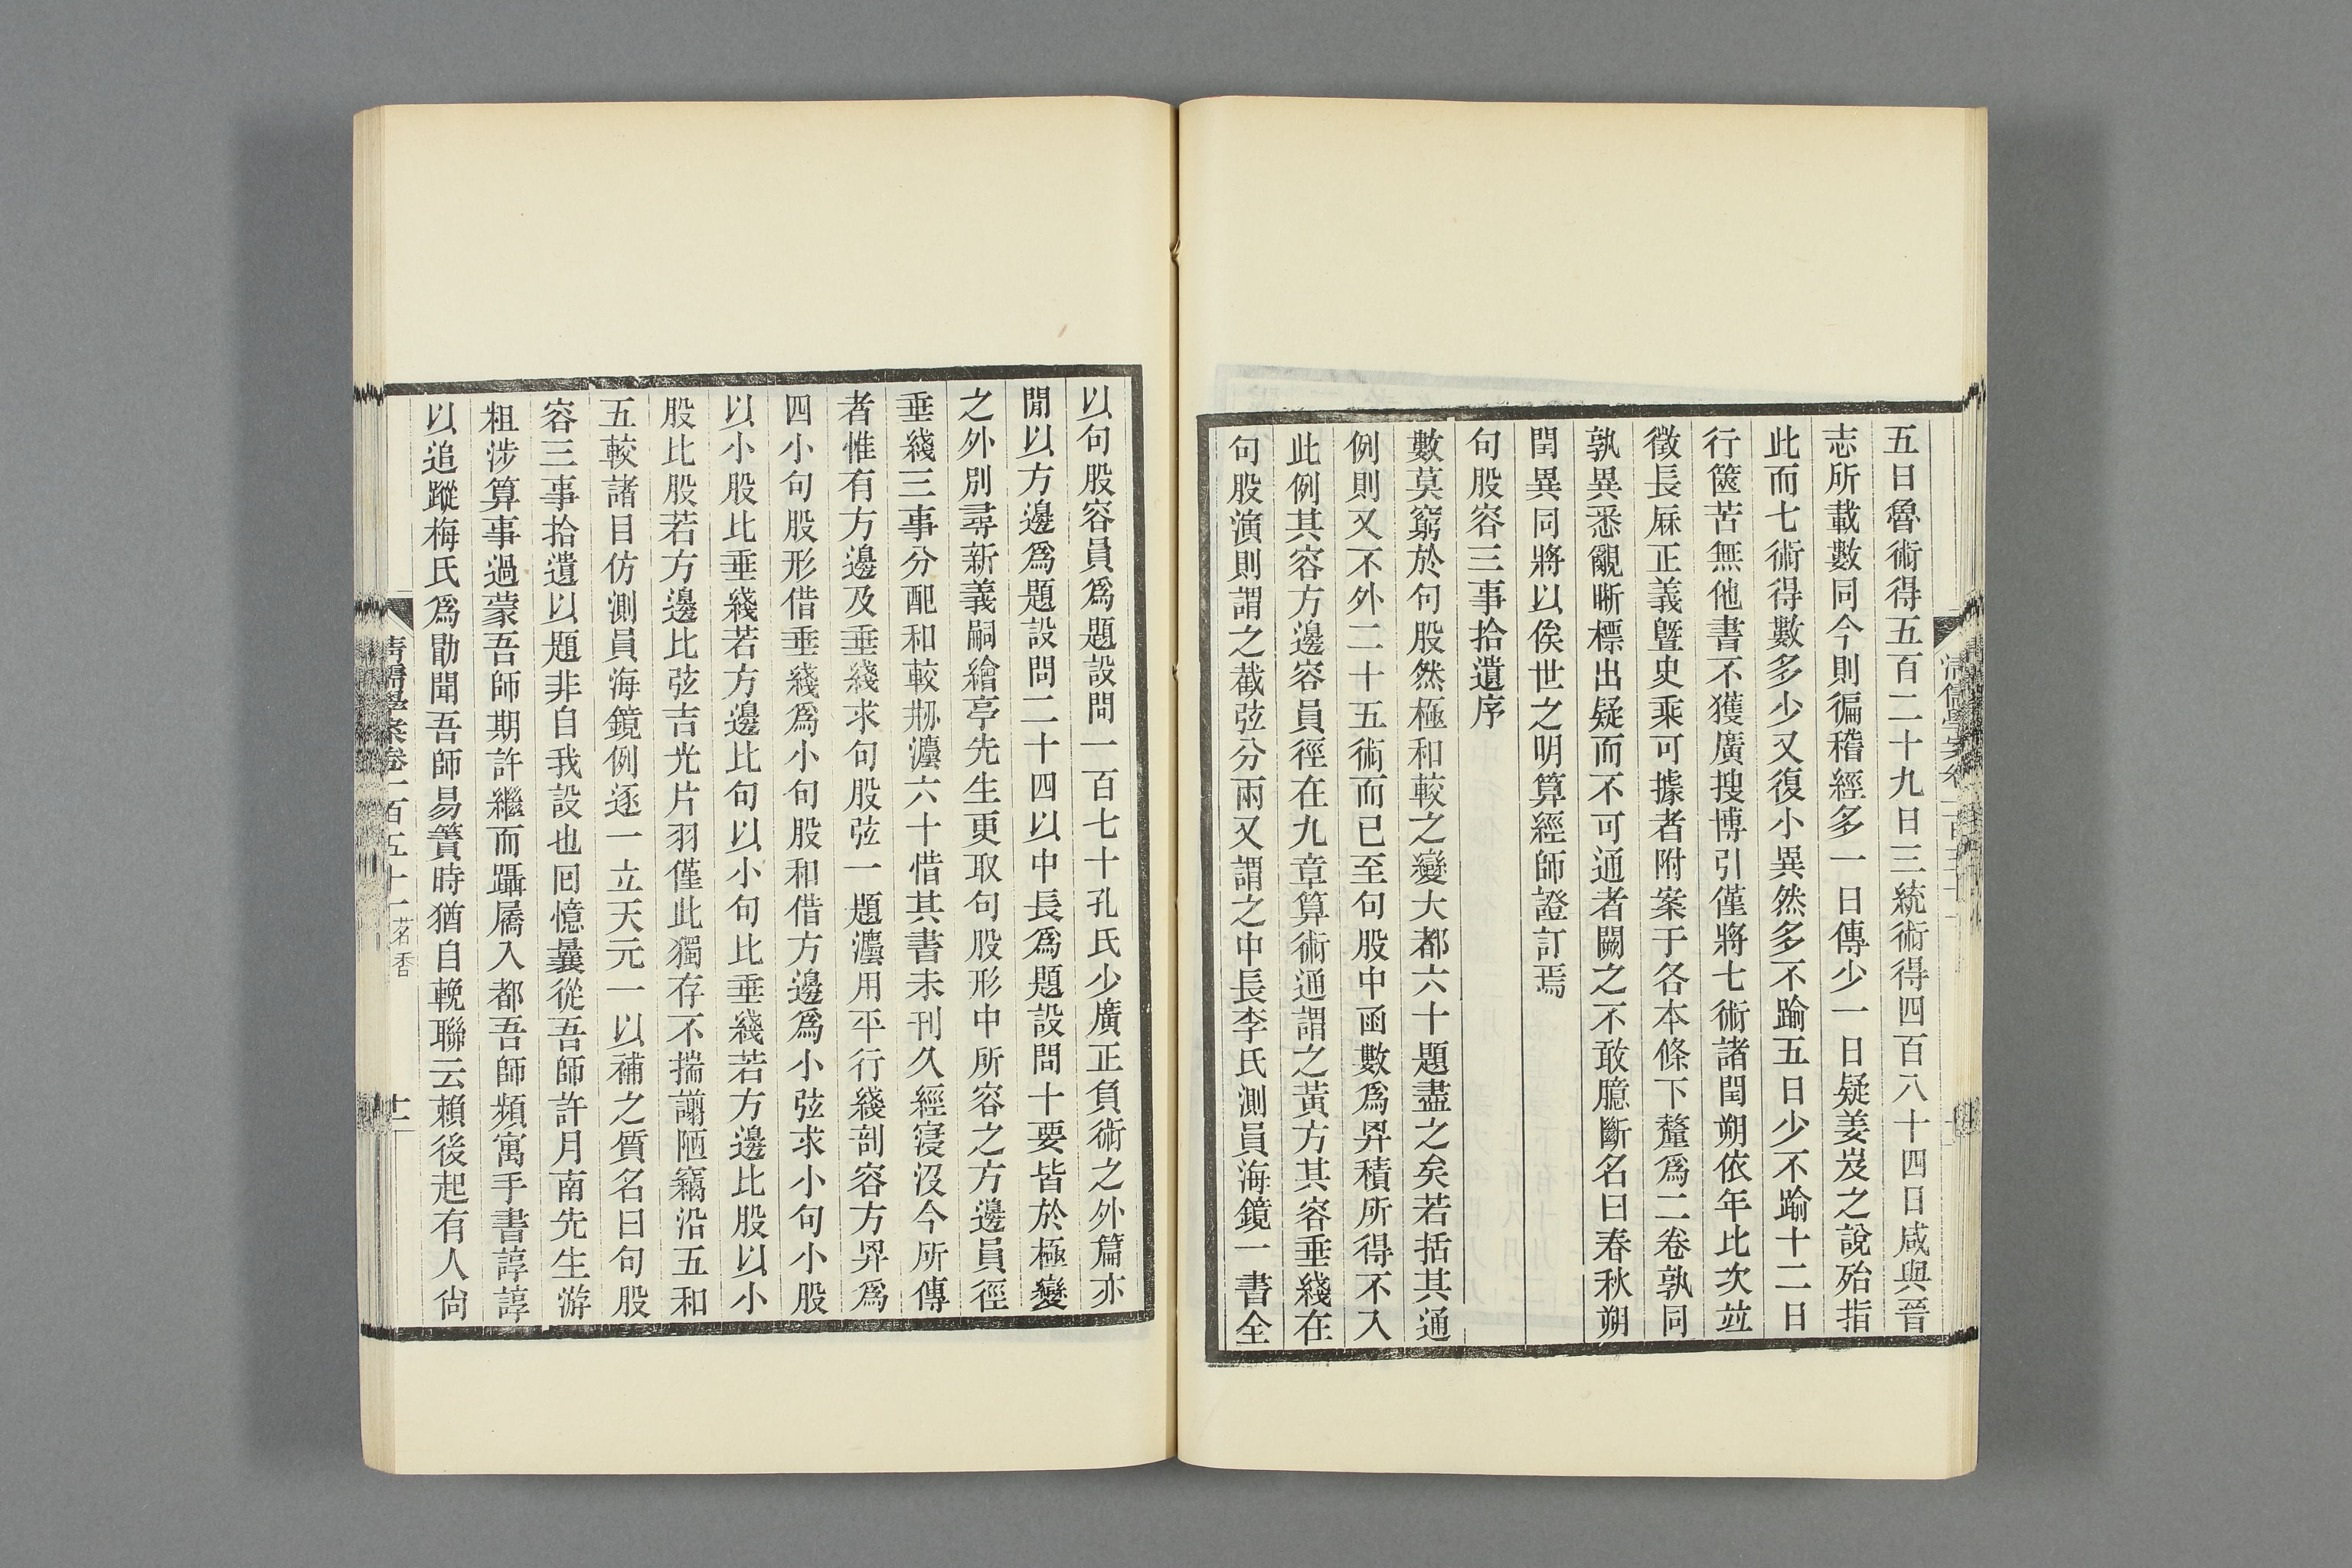 五日魯術得五百二十九日三統術得四百八十四日咸與晉
志所載數同今則徧稽經多一日傳少一日疑姜岌之說殆指
此而七術得數多少又復小異然多不踰五日少不踰十二日
行篋苦無他書不獲廣搜博引僅將七術諸閏朔依年比次竝
徵長厤正義曁史乘可據者附案于各本條下釐爲二卷孰同
孰異悉覼晣標出疑而不可通者闕之不敢臆斷名曰春秋朔
閏異同將以俟世之明算經師證訂焉
句股容三事拾遺序
數莫窮於句股然極和較之變大都六十題盡之矣若括其通
例則又不外二十五術而已至句股中函數爲昇積所得不入
此例其容方邊容員徑在九章算術通謂之黃方其容垂綫在
句股演則謂之截弦分兩又謂之中長李氏測員海鏡一書全
以句股容員爲題設問一百七十孔氏少廣正負術之外篇亦
閒以方邊爲題設問二十四以中長爲題設問十要皆於極變
之外別尋新義嗣繪亭先生更取句股形中所容之方邊員徑
垂綫三事分配和較剏灋六十惜其書未刊久經寖沒今所傳
者惟有方邊及垂綫求句股弦一題灋用平行綫剖容方昇爲
四小句股形借垂綫爲小句股和借方邊爲小弦求小句小股
以小股比垂綫若方邊比句以小句比垂綫若方邊比股以小
股比股若方邊比弦吉光片羽僅此獨存不揣譾陋竊沿五和
五較諸目仿測員海鏡例逐一立天元一以補之質名曰句股
容三事拾遺以題非自我設也囘憶曩從吾師許月南先生游
粗涉算事過蒙吾師期許繼而躡屩入都吾師頻寓手書諄諄
以追蹤梅氏爲勖聞吾師易簀時猶自輓聯云賴後起有人尙
清儒學案卷一百五十一 茗香
十二